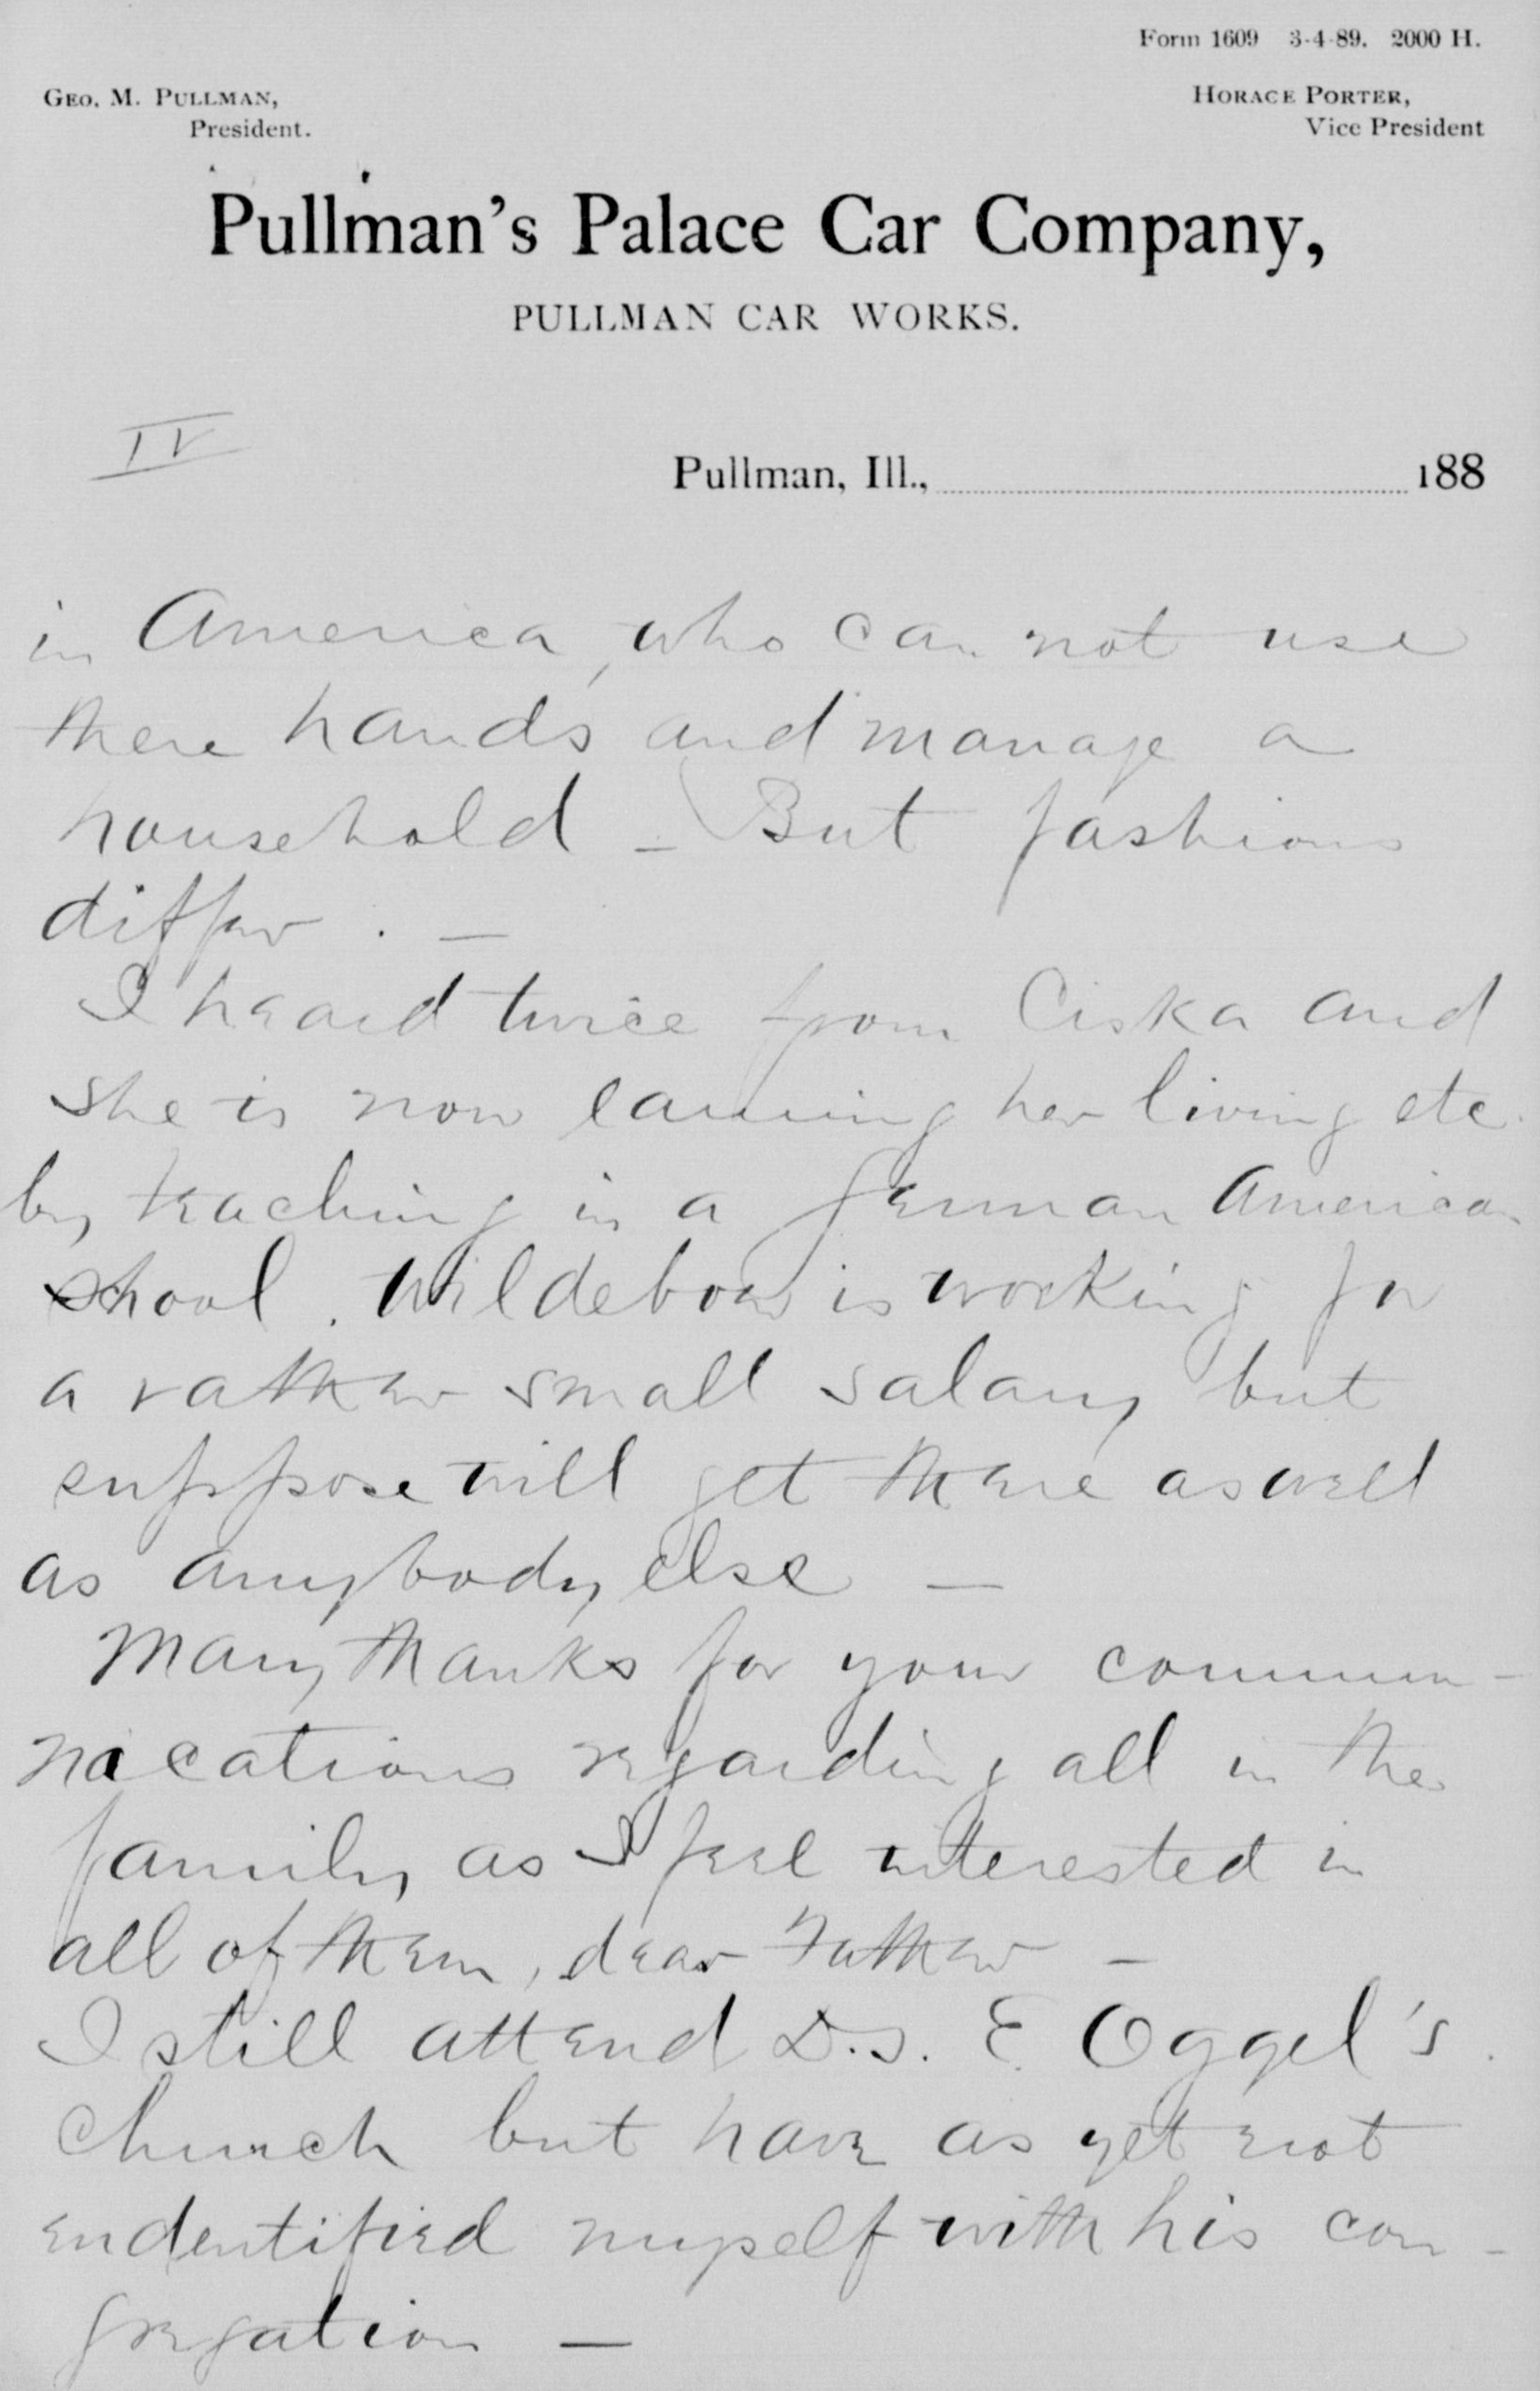 Form 1609 3-4-89. 2000 H.
GEO. M. PULLMAN,
President.
HORACE PORTER,
Vice President
Pullman's Palace Car Company,
PULLMAN CAR WORKS.
IV
Pullman, Ill., 188
in America, who can not use
there hands and manage a
household - But fashions
differ . —
I heard twice from Ciska and
she is now earning her living etc.
by teaching in a german American
shool . Wildeboer is working for
a rather small salary but
suppose will get there as well
as anybody else —
Many thanks for your commu-
nications regarding all in the
family, as I feel interested in
all of them, dear Father —
I still attend D.s. E. Oggel's
church but have as yet not
endentified myself with his con-
gregation —